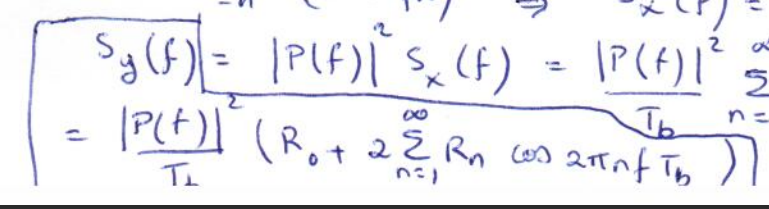 S_y(f) = |P(f)|² S_x(f) = |P(f)|²/T_b Σ n=
= |P(f)|²/T_b (R_0 + 2 Σ_{n=1}^{∞} R_n cos 2πnf T_b)